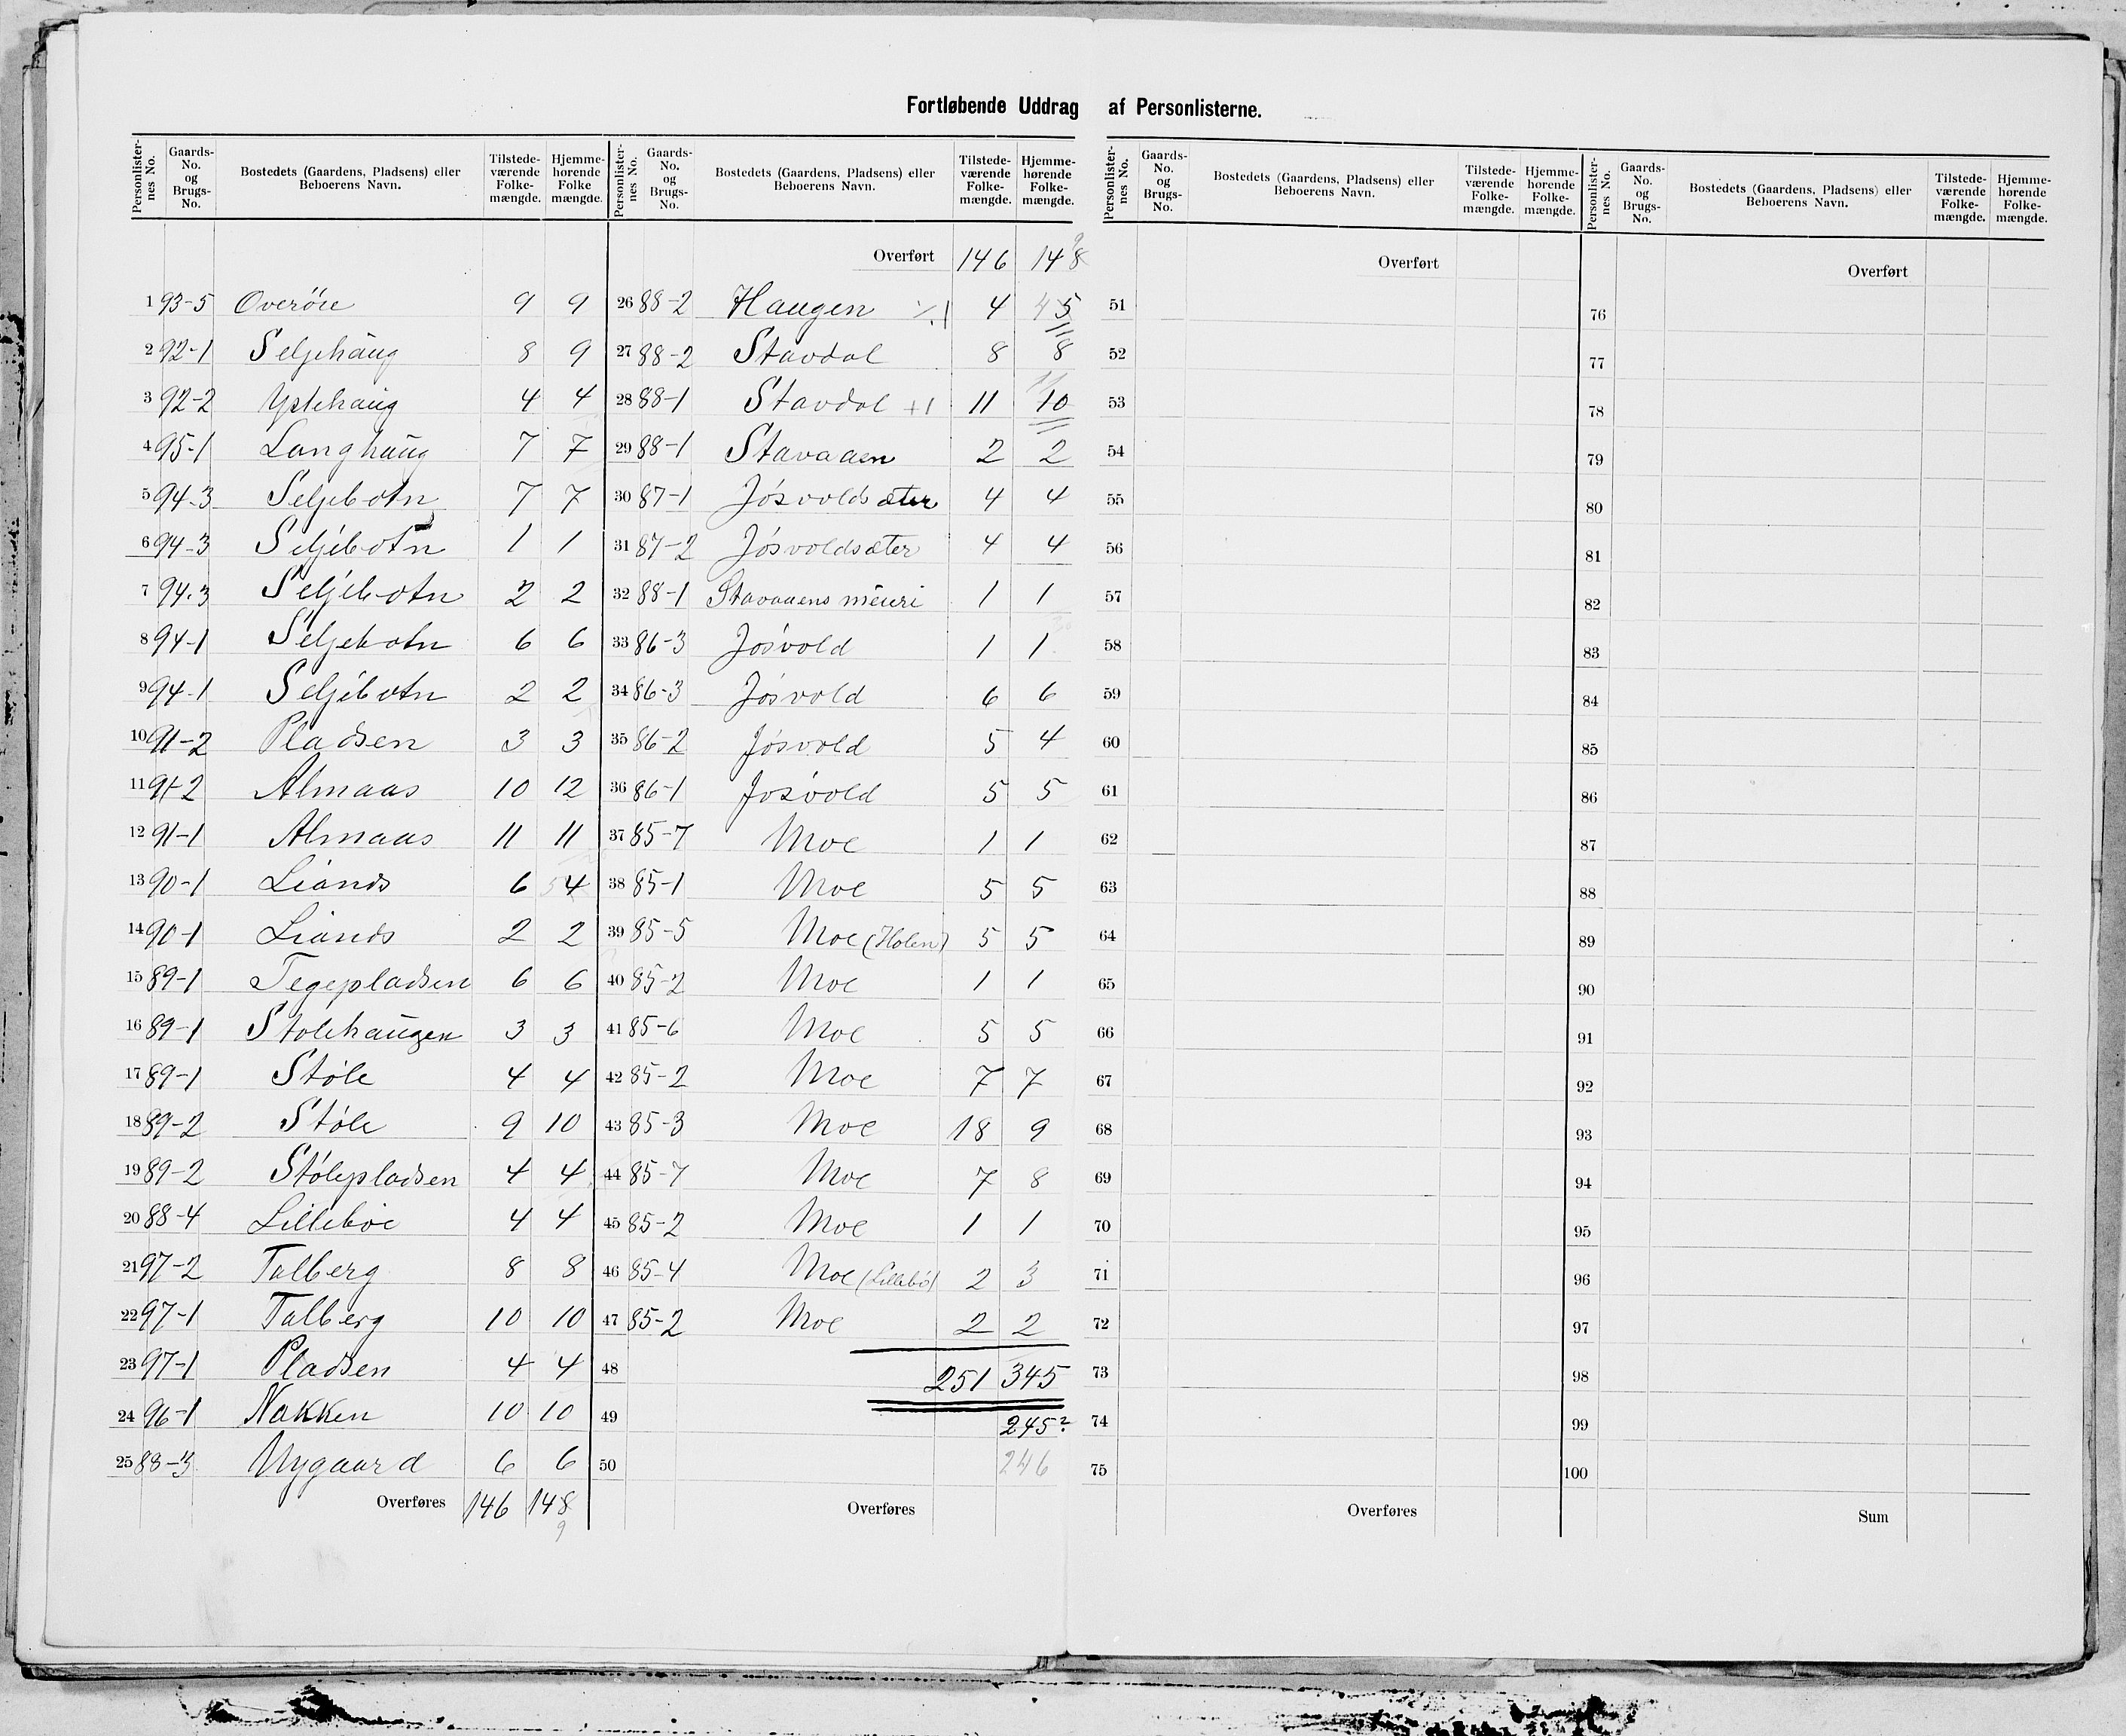 Fortløbende Uddrag af Personlisterne.
Personlister-nes No. Gaards-No. og Brugs-No. Bostedets (Gaardens, Pladsens) eller Beboerens Navn. Tilstede-værende Folke-mængde. Hjemme-hørende Folke mængde.
1 93-5 Overöie 9 9
2 92-1 Seljehaug 8 9
3 92-2 Ystehaug 4 4
4 95-1 Langhaug 7 7
5 94-3 Seljebotn 7 7
6 94-3 Seljebotn 1 1
7 94-3 Seljebotn 2 2
8 94-1 Seljebotn 6 6
9 94-1 Seljebotn 2 2
10 91-2 Pladsen 3 3
11 91-2 Almaas 10 12
12 91-1 Almaas 11 11
13 90-1 Liands 6 5 4
14 90-1 Liands 2 2
15 89-1 Tegepladsen 6 6
16 89-1 Stolehaugen 3 3
17 89-1 Støle 4 4
18 89-2 Støle 9 10
19 89-2 Stølepladsen 4 4
20 88-4 Lilleböe 4 4
21 97-2 Talberg 8 8
22 97-1 Talberg 10 10
23 97-1 Pladsen 4 4
24 96-1 Nakken 10 10
25 88-3 Nygaard 6 6
Overføres 146 148
9
Personlister-nes No. Gaards-No. og Brugs-No. Bostedets (Gaardens, Pladsens) eller Beboerens Navn. Tilstede-værende Folke-mængde. Hjemme-hørende Folke-mængde.
Overført 146 148 9
26 88-2 Haugen ⁒1 4 4 5
27 88-2 Stavdal 8 8
28 88-1 Stavdal +1 11 11 10
29 88-1 Stavaaen 2 2
30 87-1 Jøsvoldsæter 4 4
31 87-2 Jøsvoldsæter 4 4
32 88-1 Stavaaens meieri 1 1
33 86-3 Jøsvold 1 1
34 86-3 Jøsvold 6 6
35 86-2 Jøsvold 5 4
36 86-1 Jøsvold 5 5
37 85-7 Moe 1 1
38 85-1 Moe 5 5
39 85-5 Moe (Holen) 5 5
40 85-2 Moe 1 1
41 85-6 Moe 5 5
42 85-2 Moe 7 7
43 85-3 Moe 18 9
44 85-7 Moe 7 8
45 85-2 Moe 1 1
46 85-4 Moe (Lillebö) 2 3
47 85-2 Moe 2 2
48 251 345
49 245?
50 246
Overføres
Personlister-nes No. Gaards-No. og Brugs-No. Bostedets (Gaardens, Pladsens) eller Beboerens Navn. Tilstede-værende Folke-mængde. Hjemme-hørende Folke-mængde.
Overført
51
52
53
54
55
56
57
58
59
60
61
62
63
64
65
66
67
68
69
70
71
72
73
74
75
Overføres
Personlister-nes No. Gaards-No. og Brugs-No. Bostedets (Gaardens, Pladsens) eller Beboerens Navn. Tilstede-værende Folke-mængde. Hjemme-hørende Folke-mængde.
Overført
76
77
78
79
80
81
82
83
84
85
86
87
88
89
90
91
92
93
94
95
96
97
98
99
100
Sum